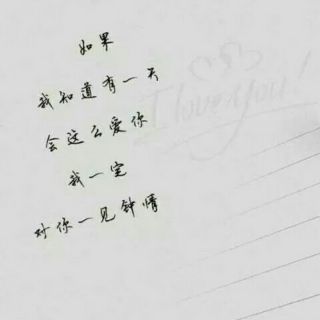 如果
我知道有一天
会这么爱你
我一定
对你一见钟情
I love you!